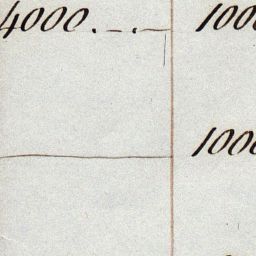 4000. _ . _ 100
100